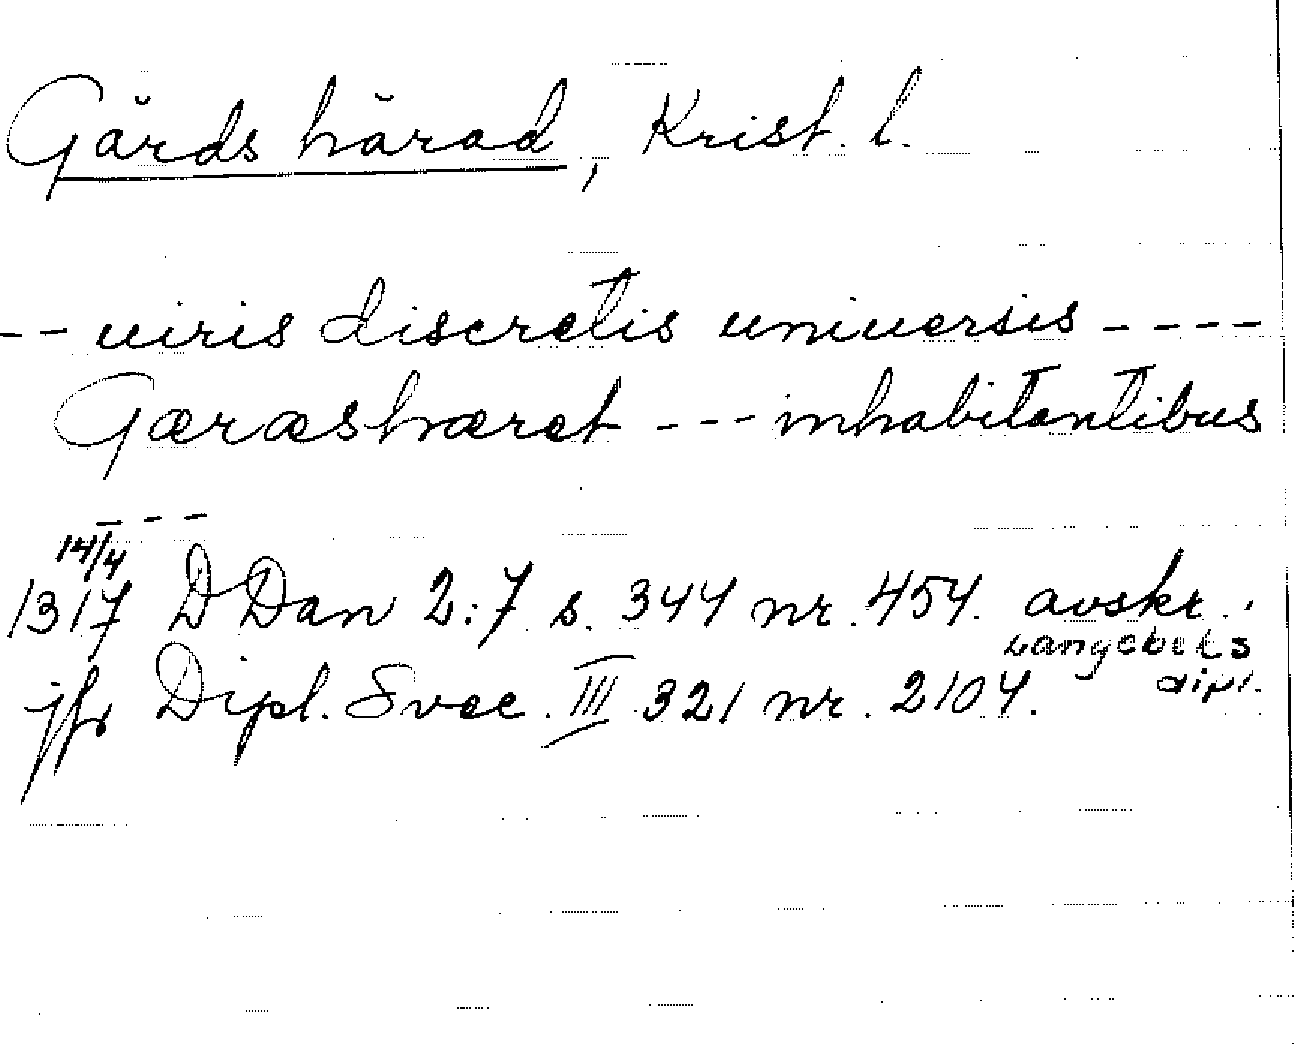 Gärds härad, Krist. l.
-- uiris discretis uniuersis ----
Gæræshæret --- inhabitantibus
---
14/4
1317 DDan 2:7 s. 344 nr. 454. avskr. i
Langebeks
dipl.
jfr Dipl. Svec. III 321 nr. 2104.